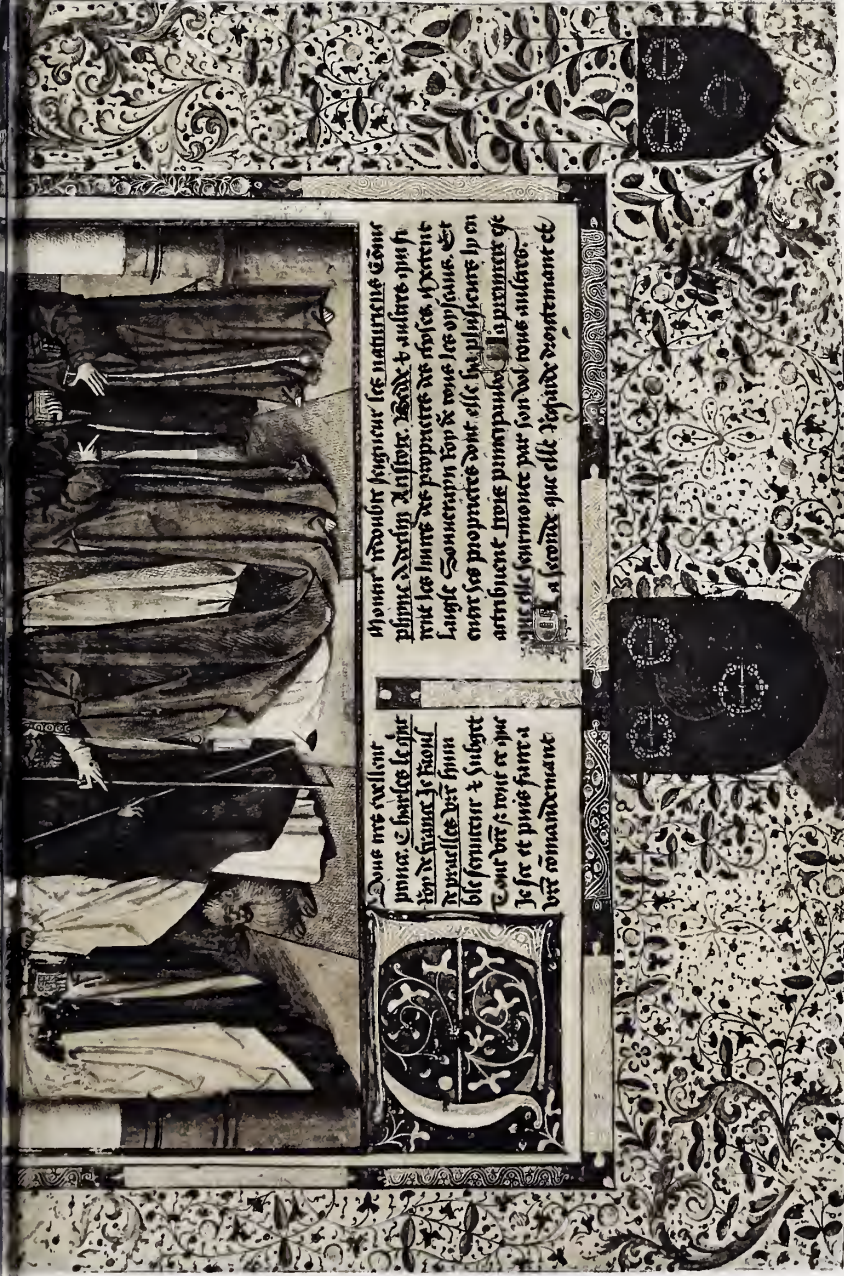 A Vous tres excellent
prince Charles le qnt
Roy de france Je Raoul
de praelles vr̃e hum
ble seruiteur & subget
Tout vr̃e tout ce que
Je sce et puis faire a
vr̃e cõmandemant
redoubte seigneur les naturiens Cõme
plinne Aristote Bede & aultres qui fi
rent les liures des proprietes des choses, mettent
Laigle Souuerayn Roy de tous les oyseaux. Et
entre ses proprietes dont elle ha plusieurs luy en
attribuent trois principaulx La premiere est
que elle seurmonte par son vol tous aultres.
La seconde que elle Regarde droictemant et